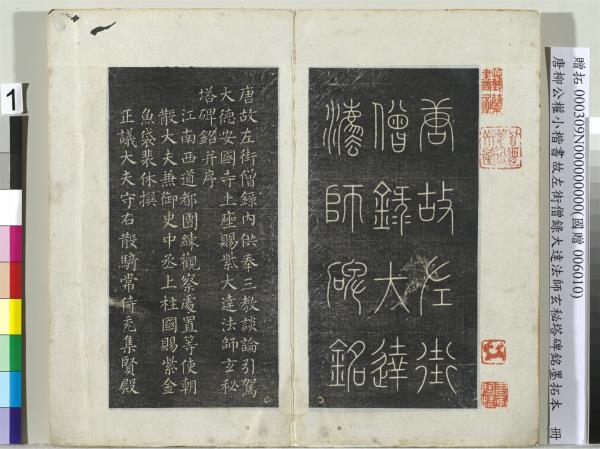 贈拓 000309N000000000(國贈 006010)
唐柳公權小楷書故左街僧錄大達法師玄秘塔碑銘墨拓本 冊
唐故左街
僧錄大達
灋師碑銘
唐故左街僧錄內供奉三教談論引駕
大德安國寺上座賜紫大達法師玄秘
塔碑銘并序
江南西道都團練觀察處置等使朝
散大夫兼御史中丞上柱國賜紫金
魚袋裴休撰
正議大夫守右散騎常侍充集賢殿
1